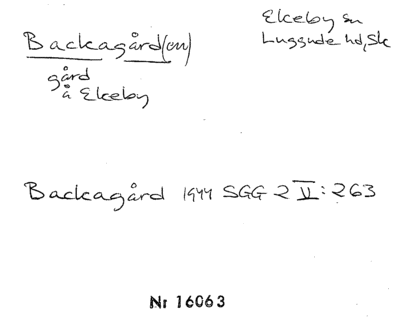 Backagård(en)
gård
å Ekeby
Ekeby sn
Luggude hd, Sk
Backagård 1944 SGG 2 V: 263
Nr 16063